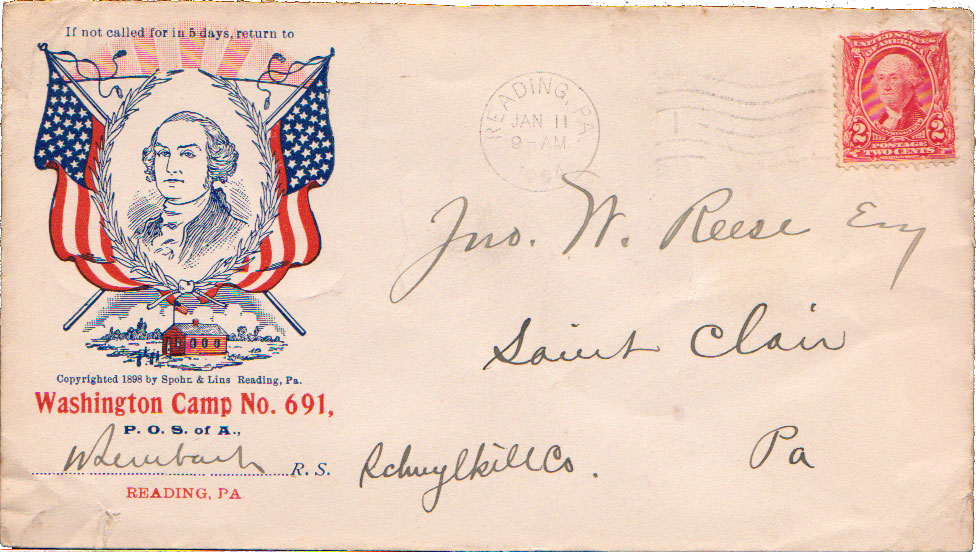 If not called for in 5 days, return to
READING, PA
JAN 11
9-AM
UNITED STATES
OF AMERICA
2 2
POSTAGE
TWO CENTS
Jno. W. Reese Esq
Saint Clair
Schuylkill Co.
Pa
Copyrighted 1898 by Spohn & Lins Reading, Pa.
Washington Camp No. 691,
P. O. S. of A.,
R. S.
READING, PA